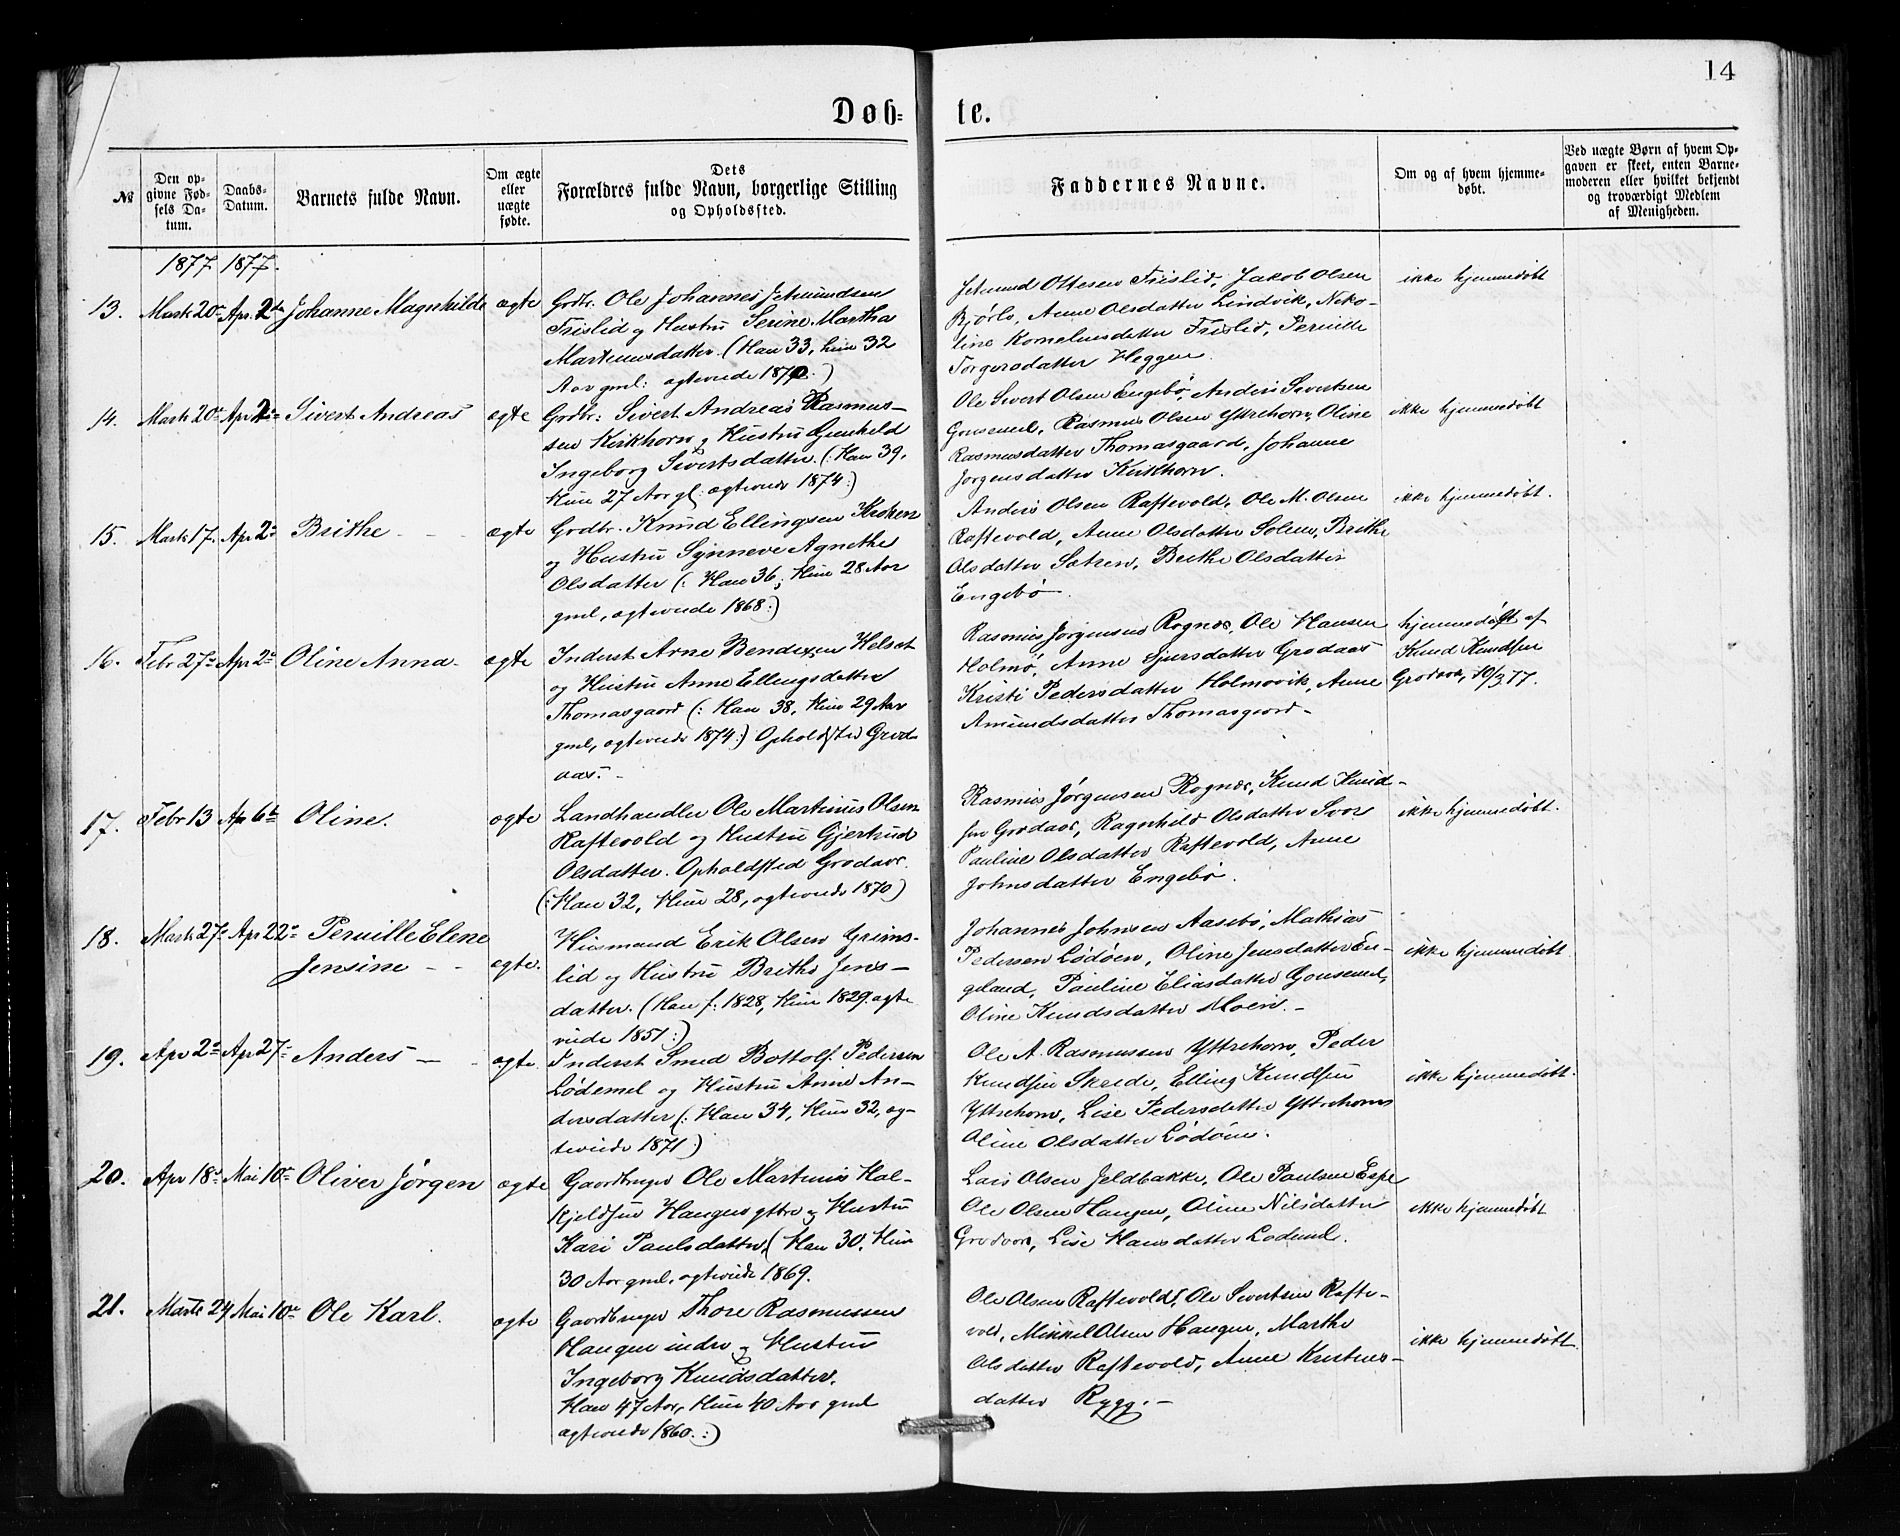 14
Døb-
te.
№
Den op-
givne Fød-
sels Da-
tum.
Daabs-
Datum.
Barnets fulde Navn.
Om ægte
eller
uægte
fødte.
Dets
Forældres fulde Navn, borgerlige Stilling
og Opholdssted.
Faddernes Navne.
Om og af hvem hjemme-
døbt.
Ved uægte Børn af hvem Op-
gaven er skeet, enten Barne-
moderen eller hvilket bekjendt
og troværdigt Medlem
af Menigheden.
1877 1877.
13. Marts 20de Apr. 2den Johanne Magnhilde ægte
Grdbr. Ole Johannes Jetmundsen
Frislid og Hustru Serine Martha
Martinusdatter. (Han 33, hun 32
Aar gml: ægteviede 1870.)
Jetmund Ottesen Frislid, Jakob Olsen
Bjørlo, Anne Olsdatter Lindvik, Niko-
line Korneliusdatter Frislid, Pernille
Torgersdatter Heggen.
ikke hjemmedøbt
14. Marts 20de Apr 2den Sivert Andreas ægte
Grdbr: Sivert Andreas Rasmus-
sen Kirkhorn og Hustru Gunhild
Ingeborg Sivertsdatter. (: Han 39,
Hun 27 Aar gl: ægteviede 1874:)
Ole Sivert Olsen Engebø, Anders Sivertsen
Gausemel, Rasmus Olsen Yttrehorn, Oline
Rasmusdatter Thomasgaard, Johanne
Jørgensdatter Kirkhorn.
ikke hjemmedøbt
15. Marts 17. Apr 2den Brithe - - ægte
Grdbr. Knud Ellingsen Kroken
og Hustru Synneve Agnethe
Olsdatter (: Han 36, Hun 28 Aar
gml, ægteviede 1868:)
Anders Olsen Raftevold, Ole M. Olsen
Raftevold, Anne Olsdatter Solem, Brithe
Olsdatter Sætren, Berthe Olsdatter
Engebø.
ikke hjemmedøbt.
16. Febr 27de Apr 2den Oline Anna - ægte
Inderst Arne Bendixen Helset
og Hustru Anne Ellingsdatter
Thomasgaard (: Han 38, Hun 29 Aar
gml, ægteviede 1874:) Opholdsted Grod-
aas. -
Rasmus Jørgensen Rognes, Ole Hansen
Holmø, Anne Sjursdatter Grodaas
Kristi Pedersdatter Holmøvik, Anne
Amundsdatter Thomasgaard -
hjemmedøbt af
Knud Knudsen
Grodaas, 10/3 77.
17. Febr 13 Apr 6te Oline. ægte
Landhandler Ole Martinus Olsen
Raftevold og Hustru Gjertrud
Olsdatter. Opholdsted Grodaas.
(: Han 32, Hun 28, ægteviede 1870)
Rasmus Jørgensen Rognes, Knud Knud-
sen Grodaas, Ragnhild Olsdatter Svor
Pauline Olsdatter Raftevold, Anne
Johnsdatter Engebø.
ikke hjemmedøbt.
18. Marts 27de Apr 22de Pernille Elene
Jensine - - ægte.
Husmand Erik Olsen Grims-
lid og Hustru Brithe Jens-
datter. (Han f. 1828, Hun 1829. ægte
viede 1851:)
Johannes Johnsen Aasebø, Mathias
Pedersen Lødøen, Oline Jensdatter En-
geland, Pauline Eliasdatter Gausemel,
Oline Knudsdatter Moen. -
ikke hjemmedøbt
19. Apr 2den Apr 27de Anders - - ægte.
Inderst Smed Bottolf Pedersen
Lødemel og Hustru Anne An-
dersdatter (: Han 34, Hun 32, æg-
teviede 1871:)
Ole A. Rasmussen Yttrehorn, Peder
Knudsen Skrede, Elling Knudsen
Yttrehorn, Lise Pedersdatter Yttrehorn
Oline Olsdatter Lødøen.
ikke hjemmedøbt.
20. Apr 18de Mai 10de Oliver Jørgen ægte
Gaardbruger Ole Martinus Hal-
kjeldsen Haugen yttre og Hustru
Kari Paulsdatter, (Han 30, Hun
30 Aar gml. ægteviede 1869.
Lars Olsen Jeldbakke, Ole Paulsen Espe
Ole Olsen Haugen, Oline Nilsdatter
Grodaas, Lise Hansdatter Lødemel.
ikke hjemmedøbt
21. Marts 24 Mai 10de Ole Karl. ægte
Gaardbruger Thore Rasmussen
Haugen indre og Hustru
Ingeborg Knudsdatter.
Han 47 Aar, Hun 40 Aar gml
ægteviede 1860.:)
Ole Olsen Raftevold, Ole Sivertsen Rafte-
vold, Mikkel Olsen Haugen, Marthe
Olsdatter Raftevold, Anne Kristens-
datter Rygg. -
ikke hjemmedøbt.